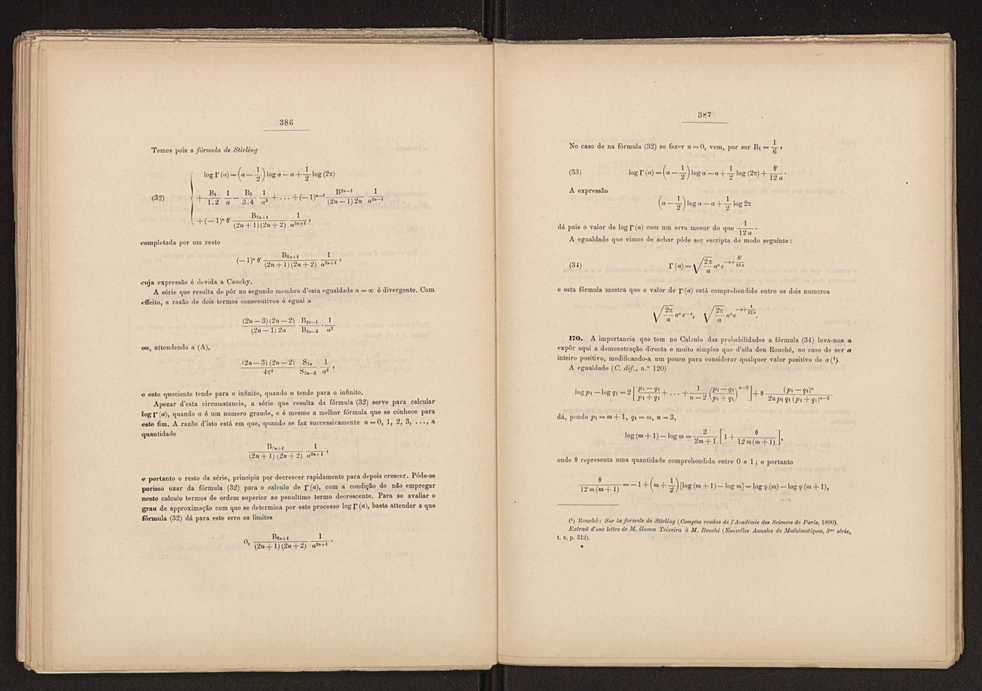 386
Temos pois a fórmula de Stirling
(32) { log Γ (a) = (a − 1/2) log a − a + 1/2 log (2π)
+ B₁/1.2 · 1/a − B₃/3.4 · 1/a³ + . . . + (−1)ⁿ⁻¹ B₂ₙ₋₁/(2n − 1) 2n · 1/a²ⁿ⁻¹
+ (−1)ⁿ θ′ B₂ₙ₊₁/(2n + 1)(2n + 2) · 1/a²ⁿ⁺¹,
completada por um resto
(−1)ⁿ θ′ B₂ₙ₊₁/(2n + 1)(2n + 2) · 1/a²ⁿ⁺¹,
cuja expressão é devida a Cauchy.
A série que resulta de pôr no segundo membro d'esta egualdade n = ∞ é divergente. Com
effeito, a razão de dois termos consecutivos é egual a
(2n − 3)(2n − 2)/(2n − 1) 2n · B₂ₙ₋₁/B₂ₙ₋₃ · 1/a²
ou, attendendo a (A),
(2n − 3)(2n − 2)/4π² · S₂ₙ/S₂ₙ₋₂ · 1/a²,
e este quociente tende para o infinito, quando n tende para o infinito.
Apezar d'esta circumstancia, a série que resulta da fórmula (32) serve para calcular
log Γ (a), quando a é um numero grande, e é mesmo a melhor fórmula que se conhece para
este fim. A razão d'isto está em que, quando se faz successivamente n = 0, 1, 2, 3, . . ., a
quantidade
B₂ₙ₊₁/(2n + 1)(2n + 2) · 1/a²ⁿ⁺¹,
e portanto o resto da série, principia por decrescer rapidamente para depois crescer. Póde-se
porisso usar da fórmula (32) para o calculo de Γ (a), com a condição de não empregar
neste calculo termos de ordem superior ao penultimo termo decrescente. Para se avaliar o
grau de approximação com que se determina por este processo log Γ (a), basta attender a que
fórmula (32) dá para este erro os limites
0, B₂ₙ₊₁/(2n + 1)(2n + 2) · 1/a²ⁿ⁺¹.
387
No caso de na fórmula (32) se fazer n = 0, vem, por ser B₁ = 1/6,
(33) log Γ (a) = (a − 1/2) log a − a + 1/2 log (2π) + θ′/12 a.
A expressão
(a − 1/2) log a − a + 1/2 log 2π
dá pois o valor de log Γ (a) com um erro menor do que 1/12 a.
A egualdade que vimos de achar póde ser escripta do modo seguinte:
(34) Γ (a) = √(2π/a) aᵃ e^(−a + θ′/12a)
e esta fórmula mostra que o valor de Γ (a) está comprehendido entre os dois numeros
√(2π/a) aᵃ e⁻ᵃ, √(2π/a) aᵃ e^(−a + 1/12a).
170. A importancia que tem no Calculo das probabilidades a fórmula (34) leva-nos a
expôr aqui a demonstração directa e muito simples que d'ella deu Rouché, no caso de ser a
inteiro positivo, modificando-a um pouco para considerar qualquer valor positivo de a (¹).
A egualdade (C. dif., n.º 120)
log p₁ − log q₁ = 2 [ p₁ − q₁/p₁ + q₁ + . . . + 1/n − 2 (p₁ − q₁/p₁ + q₁)ⁿ⁻² ] + θ (p₁ − q₁)ⁿ/2n p₁ q₁ (p₁ + q₁)ⁿ⁻²
dá, pondo p₁ = m + 1, q₁ = m, n = 3,
log (m + 1) − log m = 2/2m + 1 [ 1 + θ/12 m (m + 1) ],
onde θ representa uma quantidade comprehendida entre 0 e 1; e portanto
θ/12 m (m + 1) = − 1 + (m + 1/2) [log (m + 1) − log m] = log ψ (m) − log ψ (m + 1),
(¹) Rouché: Sur la formule de Stirling (Comptes rendus de l'Académie des Sciences de Paris, 1890).
Extrait d'une lettre de M. Gomes Teixeira à M. Rouché (Nouvelles Annales de Mathématiques, 3ᵐᵉ série,
p. 312).
*